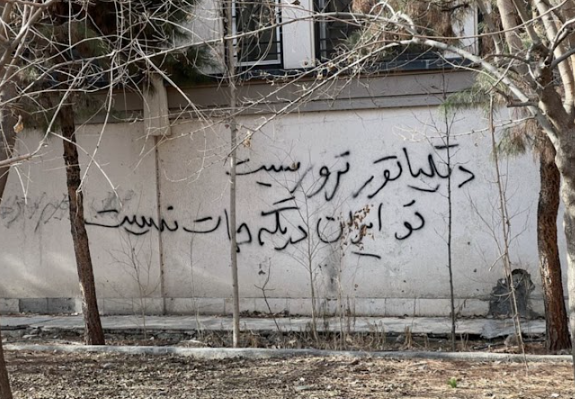 دیکتاتور تروریست
تو ایران دیگه جات نیست